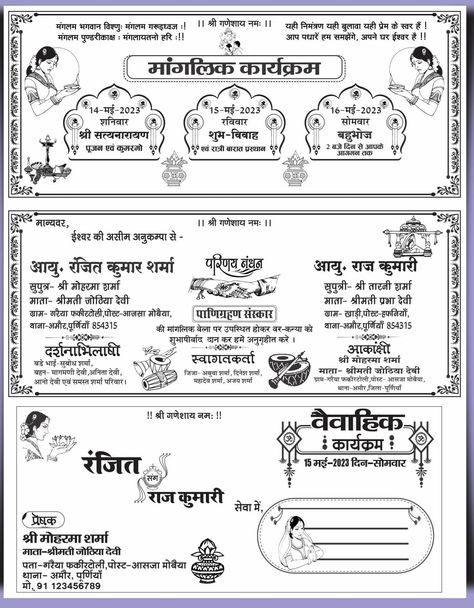 मंगलम भगवान विष्णुः मंगलम गरूड़ध्वज :।
मंगलम पुण्डरीकाक्ष : मंगलायतनो हरि :!!
।। श्री गणेशाय नमः ।।
यही निमंत्रण यही बुलावा यही प्रेम के स्वर हैं !
आप पधारें हम समझेंगे, अपने घर ईश्वर हैं !!
मांगलिक कार्यक्रम
14-मई-2023
शनिवार
श्री सत्यनारायण
पूजन एवं कुमरमो
15-मई-2023
रविवार
शुभ-बिबाह
एवं रात्री बारात प्रस्थान
16-मई-2023
सोमवार
बहुभोज
2 बजे दिन से आपके
आगमन तक
मान्यवर,
।। श्री गणेशाय नमः ।।
ईश्वर की असीम अनुकम्पा से -
आयु. रंजित कुमार शर्मा
सुपुत्र- श्री मोहरमा शर्मा
माता- श्रीमती जोठिया देवी
ग्राम- गरैया फकीरटोली,पोस्ट-आजसा मोबैया,
थाना-अमौर,पूर्णियाँ 854315
परिणय बंधन
पाणिग्रहण संस्कार
की मांगलिक बेला पर उपस्थित होकर वर-कन्या को
शुभाषीर्वाद दान कर हमे अनुग्रहीत करे ।
आयु. राज कुमारी
सुपुत्री- श्री तारनी शर्मा
माता- श्रीमती प्रभा देवी
ग्राम- खाड़ी,पोस्ट-हफनियाँ,
थाना-अमौर,पूर्णियाँ 854315
दर्शनाभिलाषी
बड़े भाई-सुबोध शर्मा,
बहन- मागषणी देवी,अनिता देवी,
आनो देवी एवं समस्त शर्मा परिवार।
स्वागतकर्ता
जिजा- अबुवा शर्मा, दिनेश शर्मा,
महादेव शर्मा, अजय शर्मा
आकांक्षी
श्री मोहरमा शर्मा
माता- श्रीमती जोठिया देवी
ग्राम-गरैया फकीरटोली,पोस्ट- आजसा मोबैया,
थाना-अमौर,जिला-पूर्णियाँ
!! श्री गणेशाय नम: !!
रंजित
संग
राज कुमारी
वैवाहिक
कार्यक्रम
15 मई-2023 दिन-सोमवार
सेवा में,
प्रेषक
श्री मोहरमा शर्मा
माता-श्रीमती जोठिया देवी
पता-गरैया फकीरटोली,पोस्ट-आजसा मोबैया
थाना- अमौर, पूर्णियाँ
मो. 91 123456789